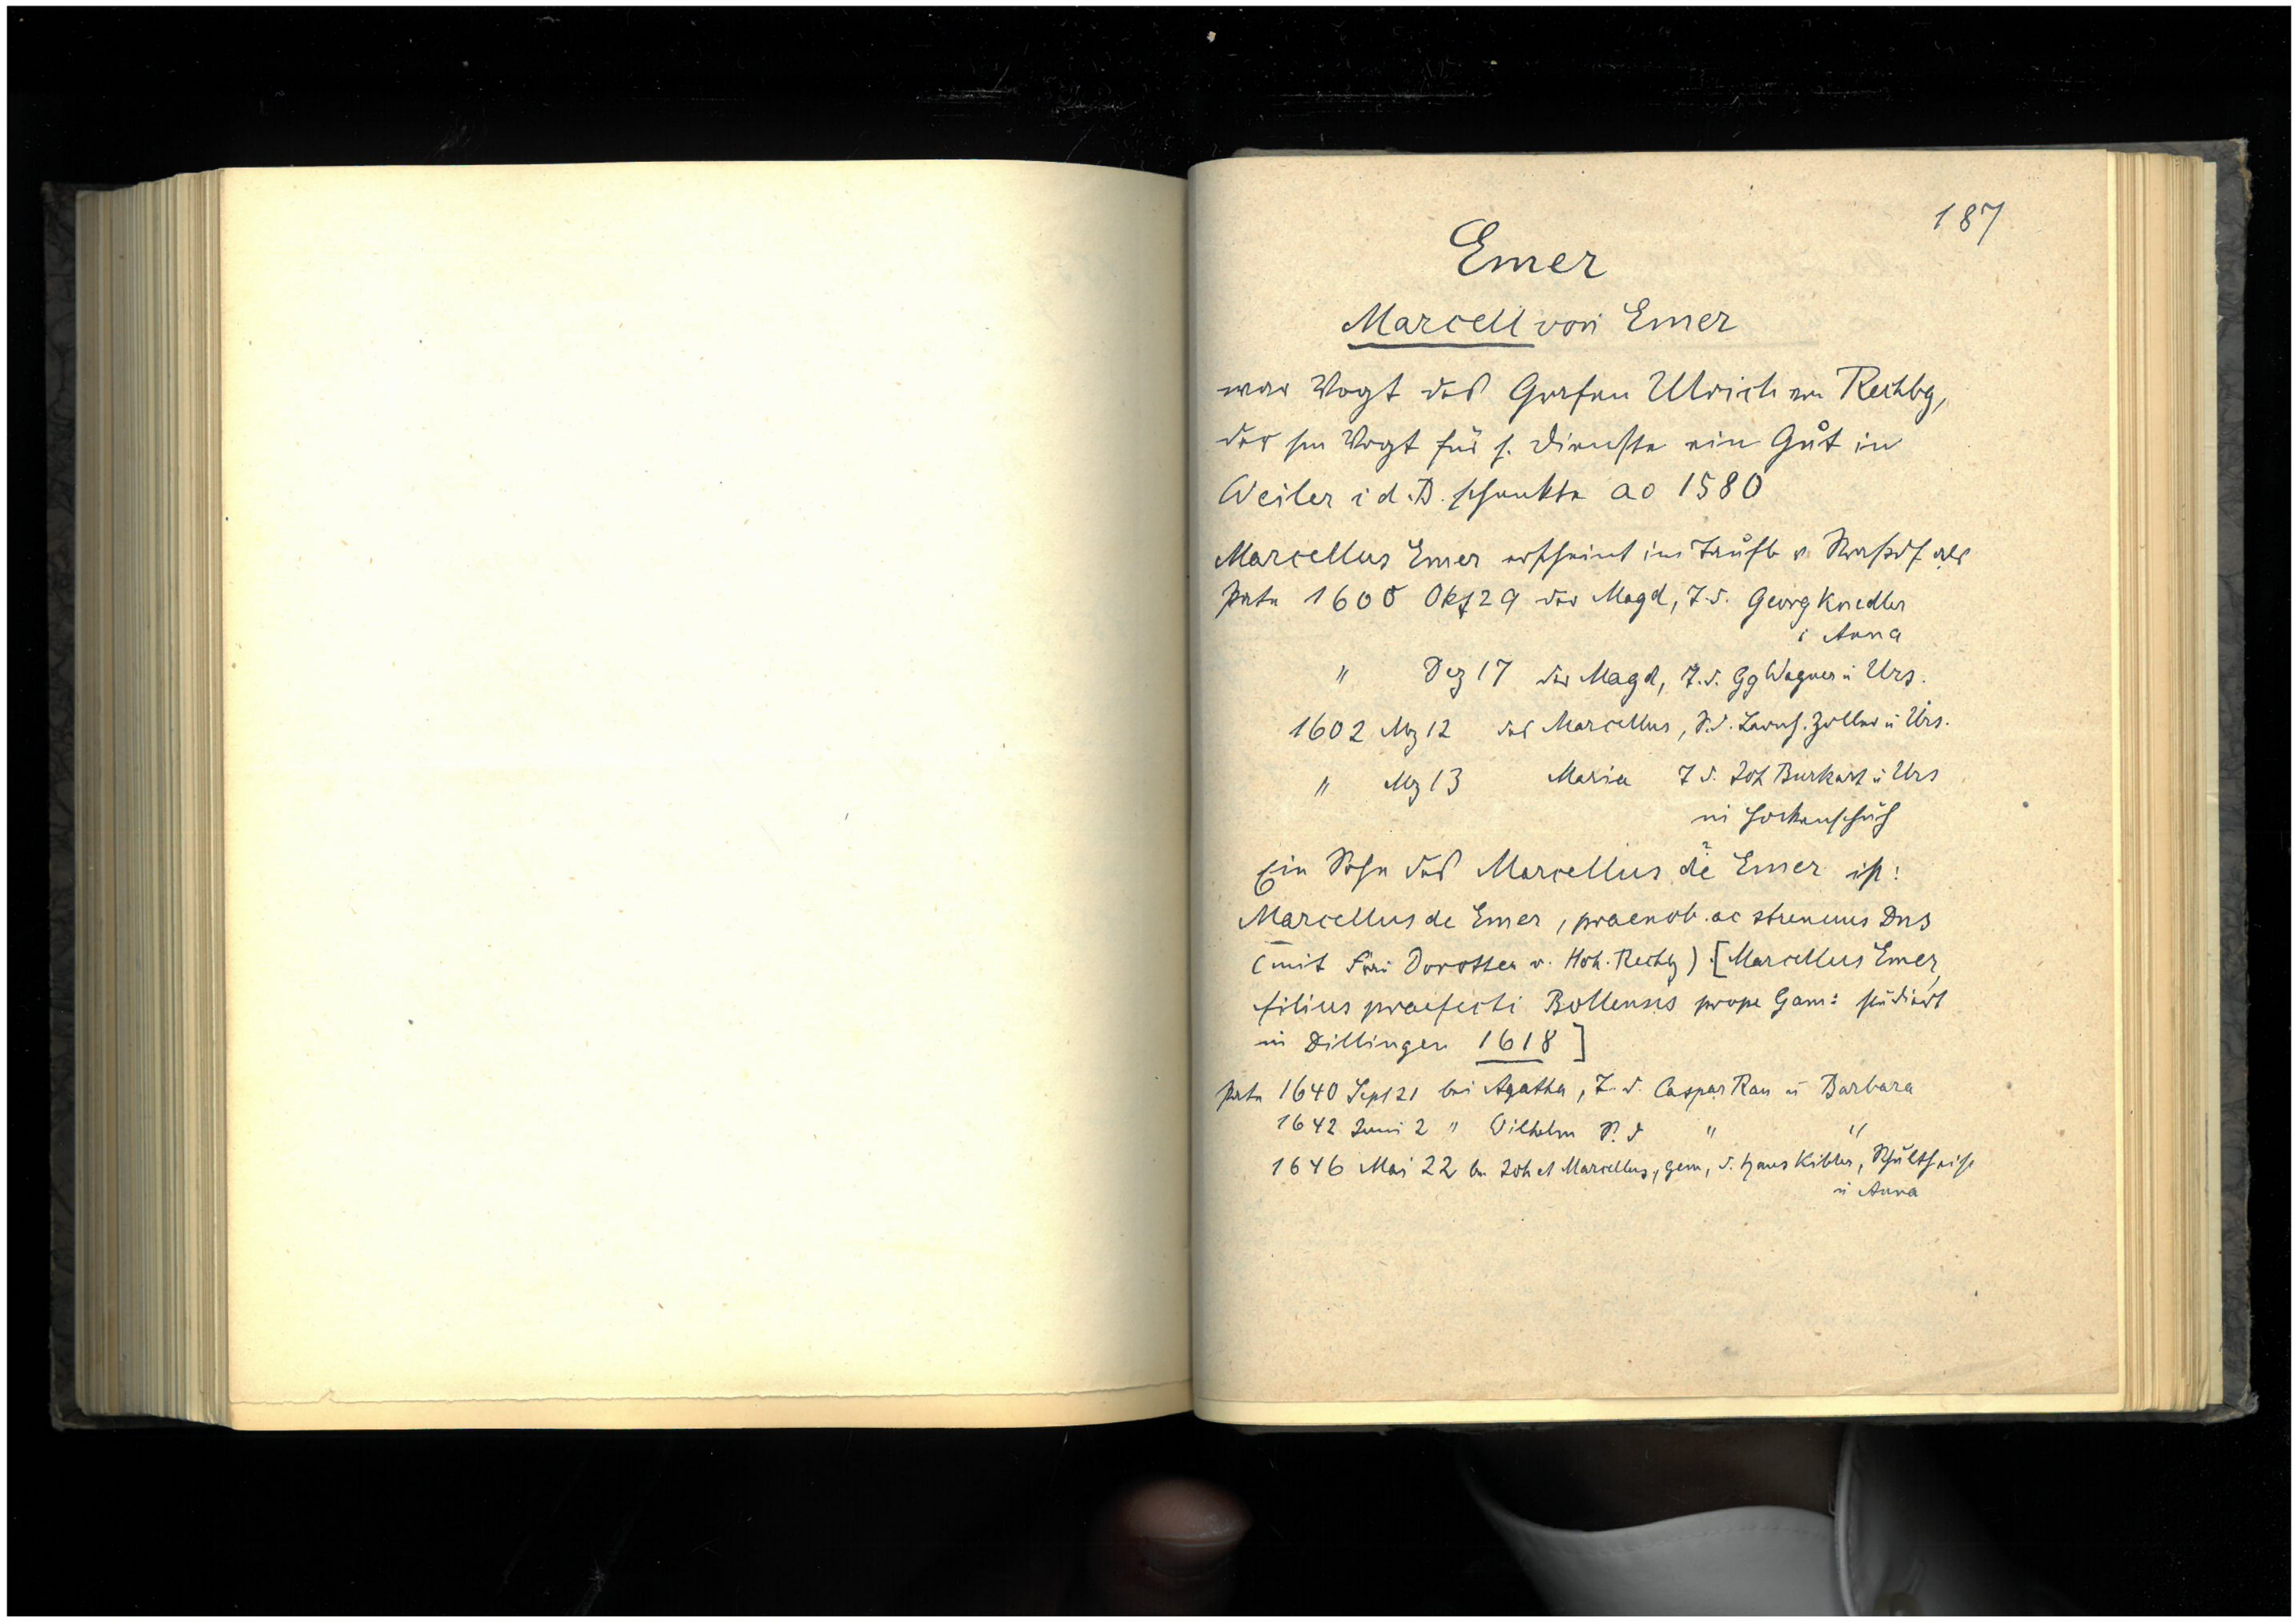 187
Emer
Marcell von Emer
war Vogt des Grafen Ulrich von Rechbg,
der sm Vogt für s. Dienste ein Gut in
Weiler i d. B. schenkte ao 1580
Marcellus Emer erscheint im Taufb v. Straßdf als
Pate 1600 Okt 29 der Magd, T. d. Georg Knedler
u Anna
" Dez 17 der Magd, T. d. Gg Wagner u Urs.
1602 Mz 12 des Marcellus, S. d. Zoller u Urs.
" Mz 13 Maria T d. Joh Burkart u Urs
in
Ein Sohn des Marcellus de Emer ist:
Marcellus de Emer, praenob. ac strenuus Dns
(mit Frau Dorothea v. Hoh. Rechbg) [Marcellus Emer,
filius praefecti Bollensis prope Gam: studiert
in Dillingen 1618]
Pate 1640 Sept 21 bei Agatha, T. d. Caspar Rau u Barbara
1642 Juni 2 " Wilhelm S. d " "
1646 Mai 22 bei Joh et Marcellus, gem, d. Hans Kibler, Schultheiß
u Anna